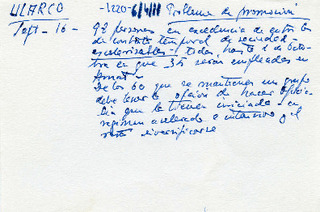 ULARCO -1220- 6/4/81 Problema de promoción
Sept - 16 - 92 personas en excedencia de
de contrato temporal de sociedad
escolarizables - todos, hasta 1 de
en que 35 serán empleados en
De los 60 que se mantienen un grupo
debe tener la opción de hacer
que la tienen iniciada en
régimen acelerado e intensivo y el
resto diversificarse